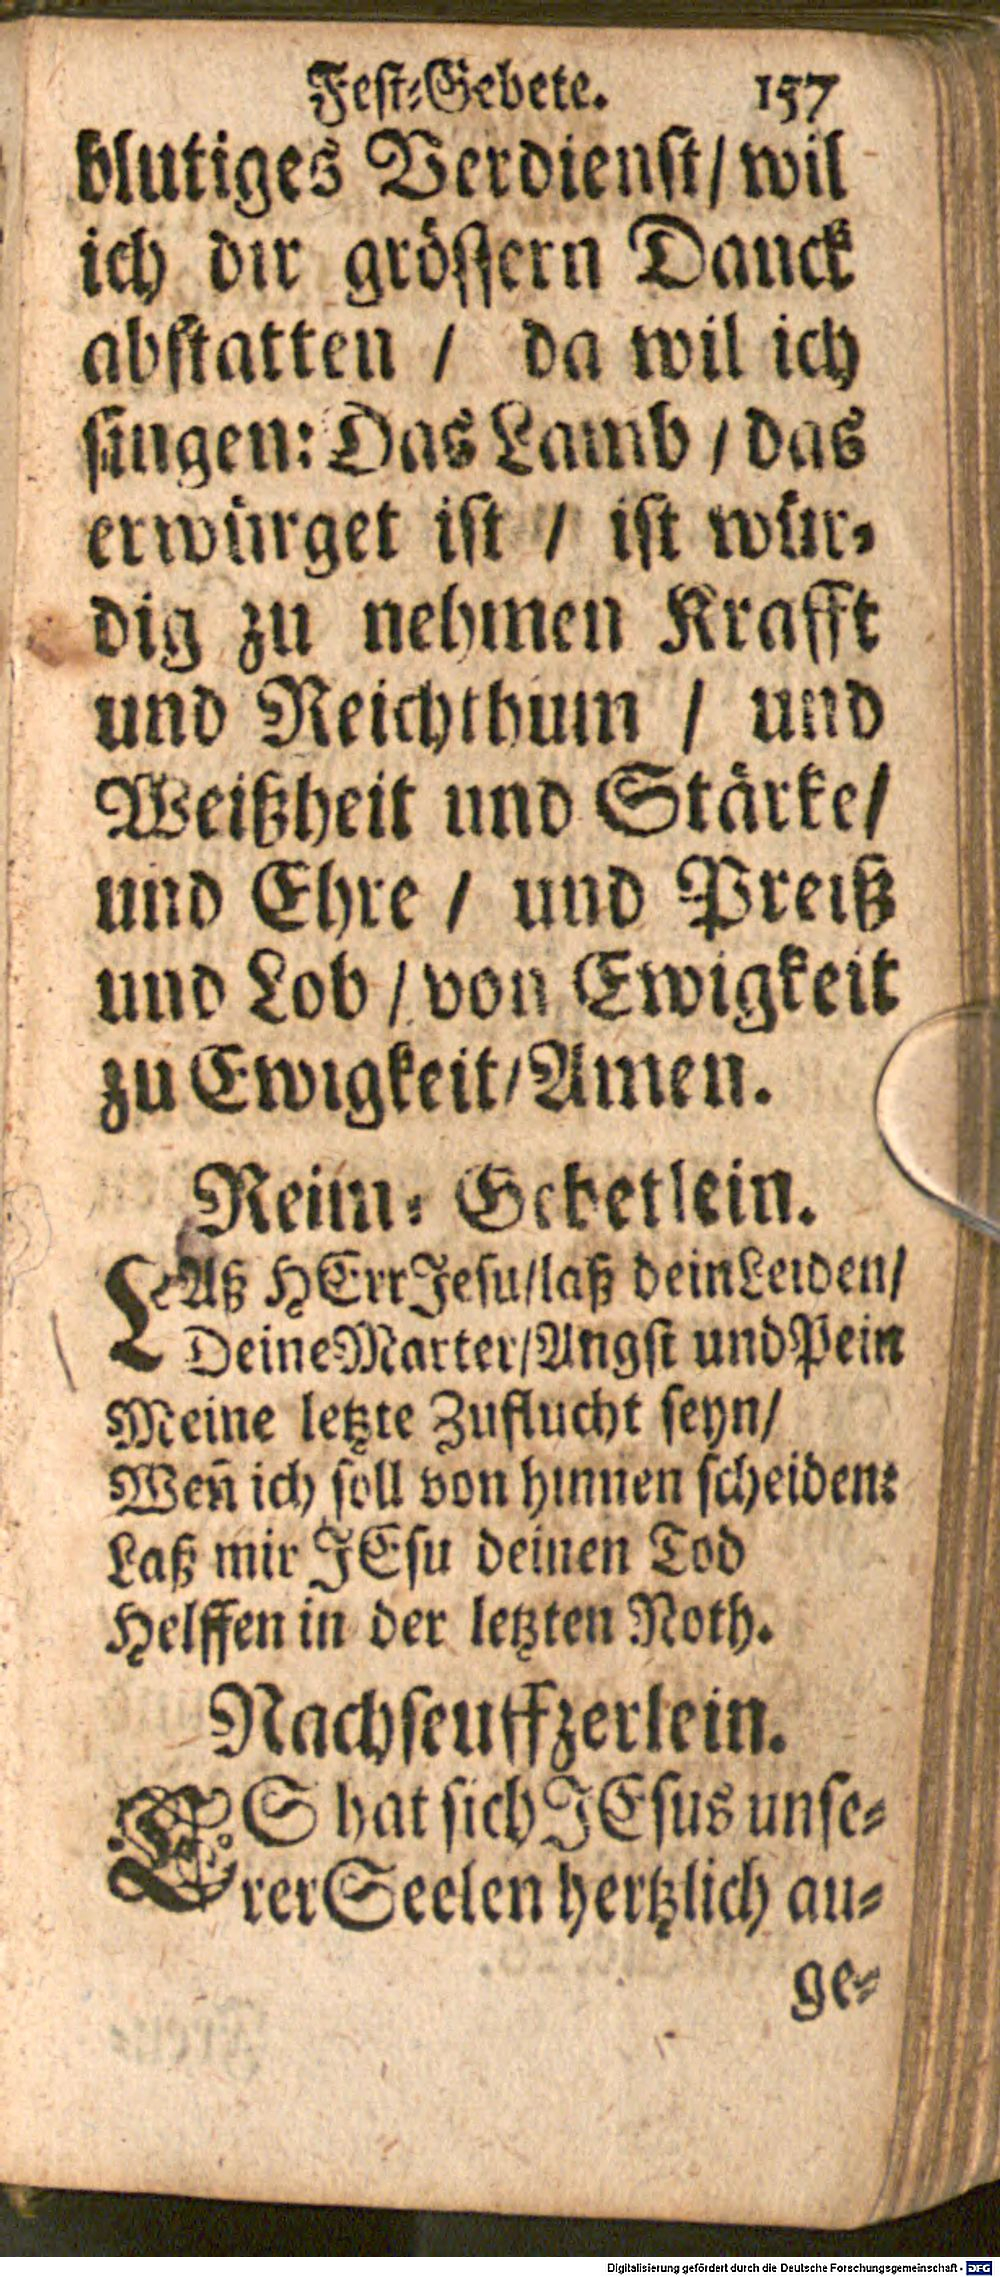 Fest-Gebete. 157
blutiges Verdienst/ wil
ich dir grössern Danck
abstatten / da wil ich
singen: Das Lamb / das
erwürget ist / ist wür-
dig zu nehmen Krafft
und Reichthum / und
Weißheit und Stärke/
und Ehre / und Preiß
und Lob / von Ewigkeit
zu Ewigkeit/ Amen.
Reim- Gebetlein.
LAß HErr Jesu/laß dein Leiden/
Deine Marter/Angst und Pein
Meine letzte Zuflucht seyn/
Weñ ich soll von hinnen scheiden:
Laß mir JEsu deinen Tod
Helffen in der letzten Noth.
Nachseuffzerlein.
ES hat sich JEsus unse-
rer Seelen hertzlich an-
ge-
Digitalisierung gefördert durch die Deutsche Forschungsgemeinschaft - DFG